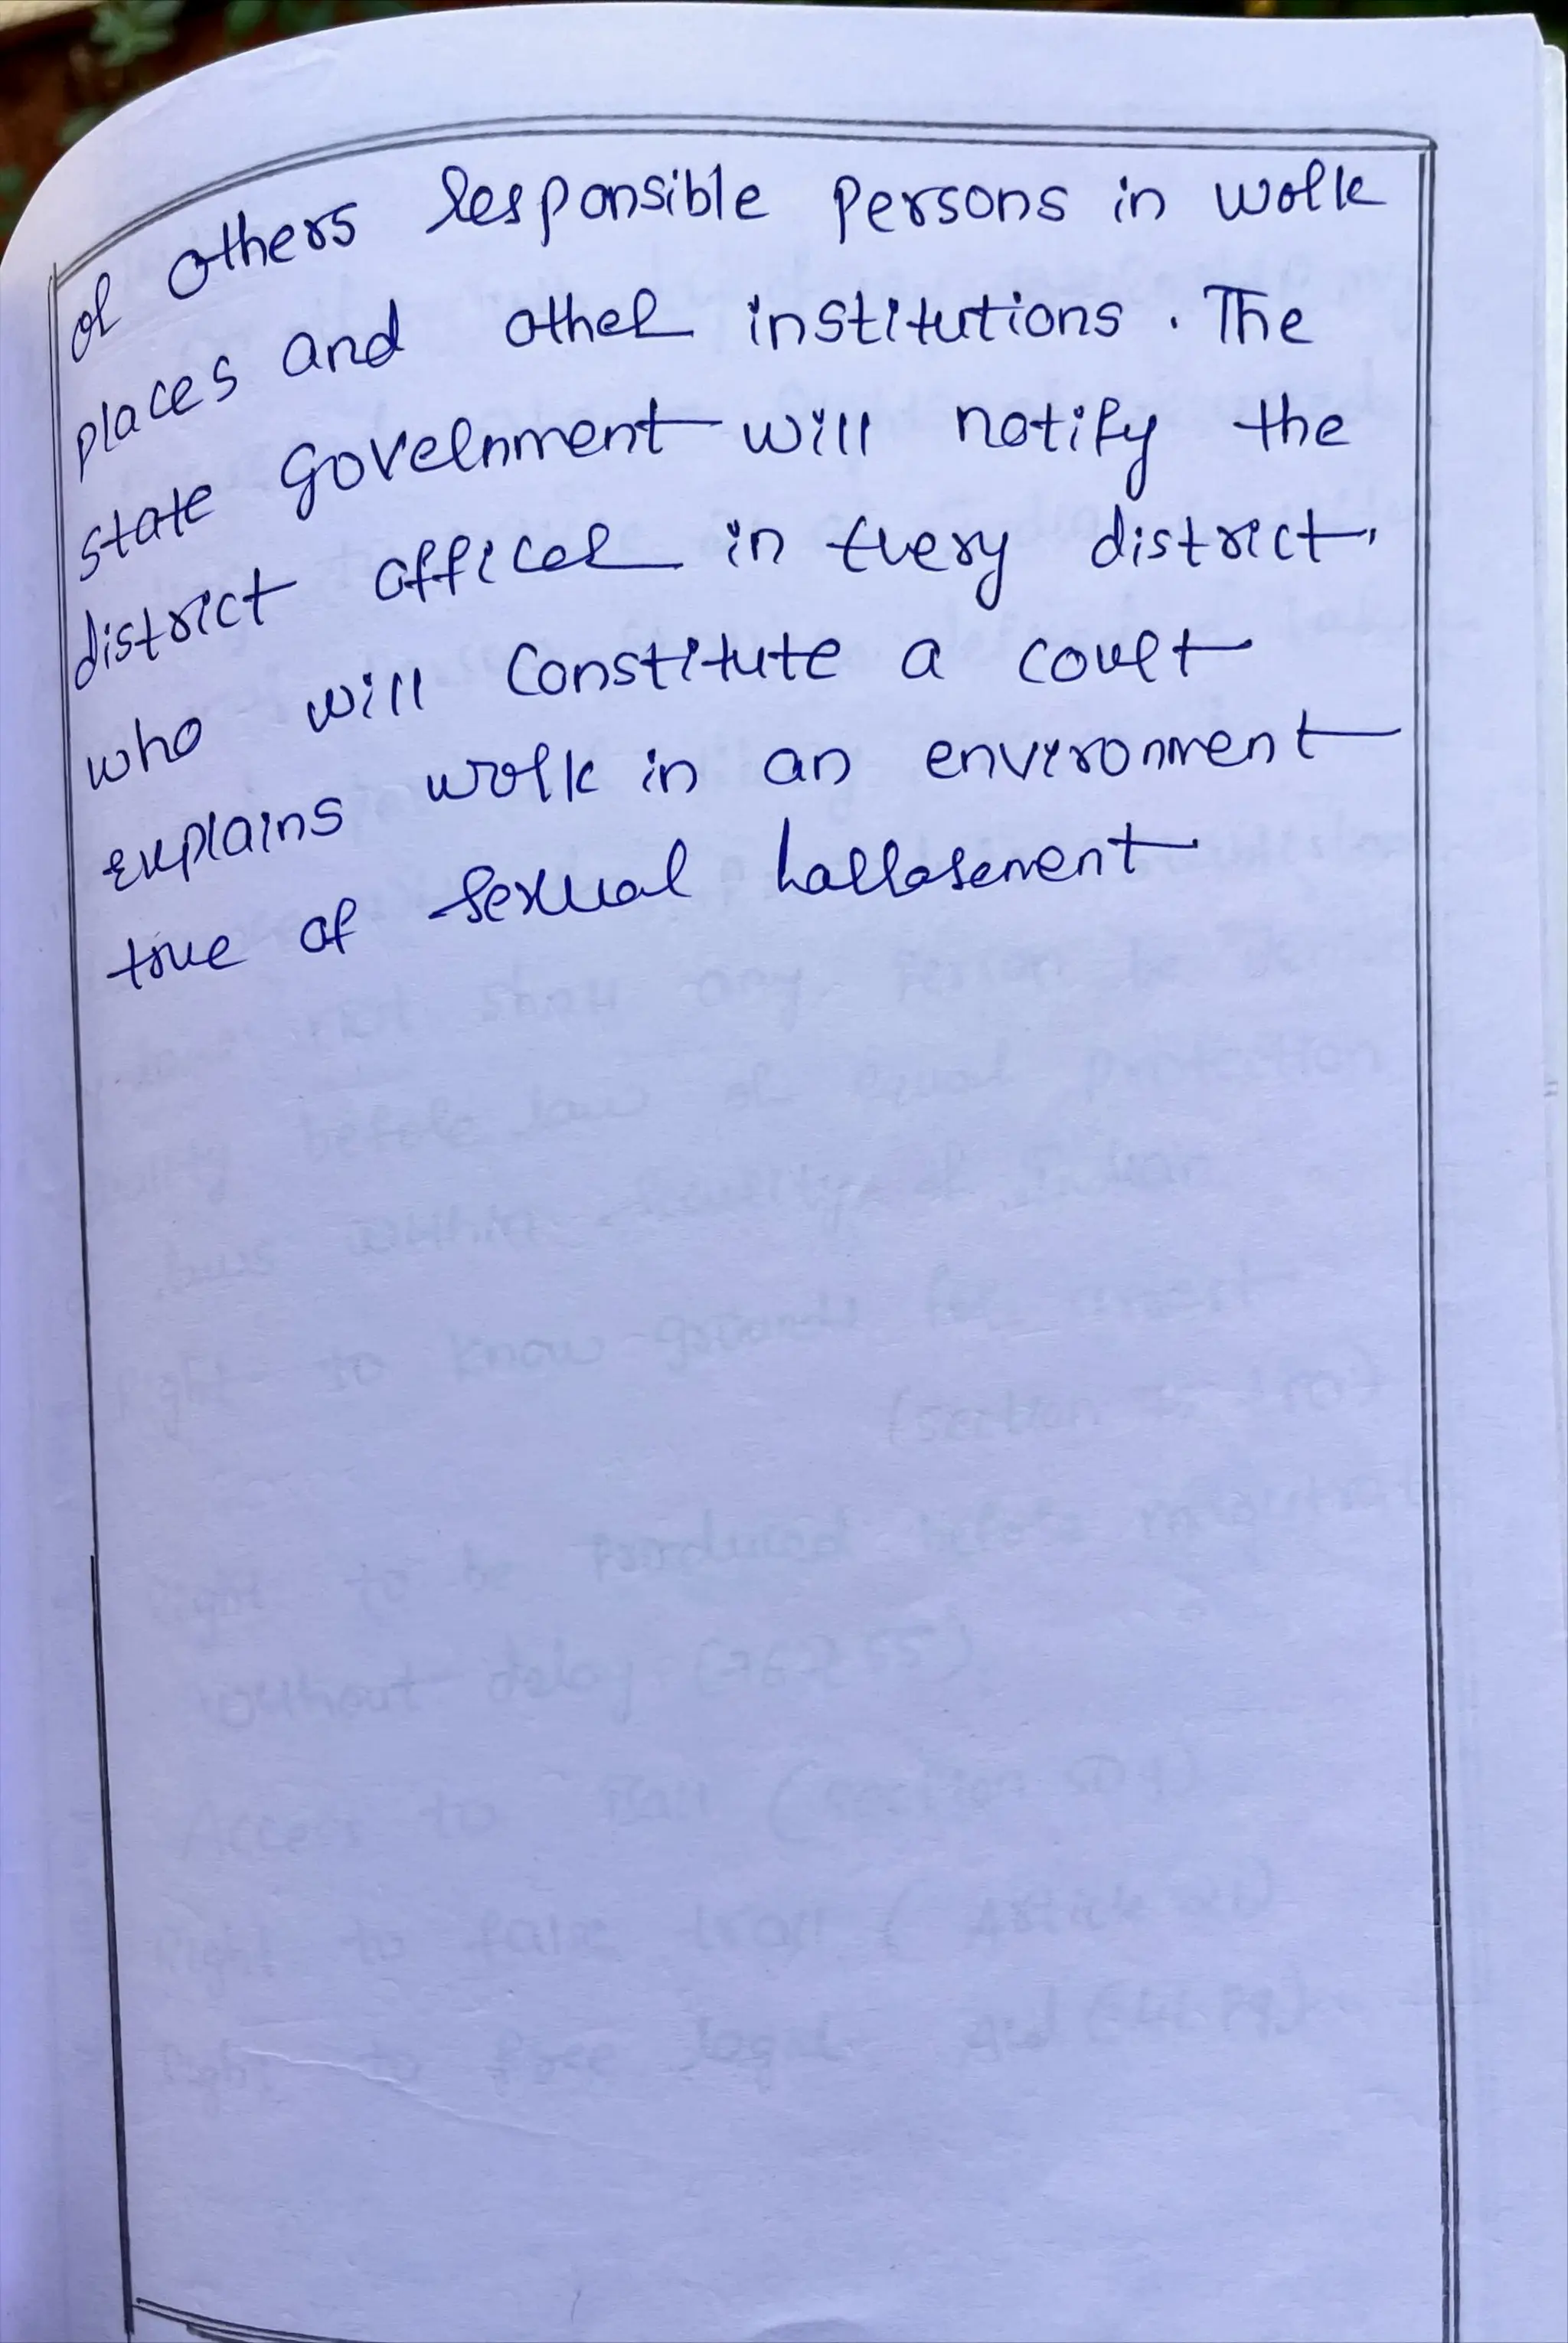 or others responsible persons in work
places and other institutions. The
state government will notify the
district officer in every district.
who will constitute a court
explains work in an environment
true of sexual harrasement